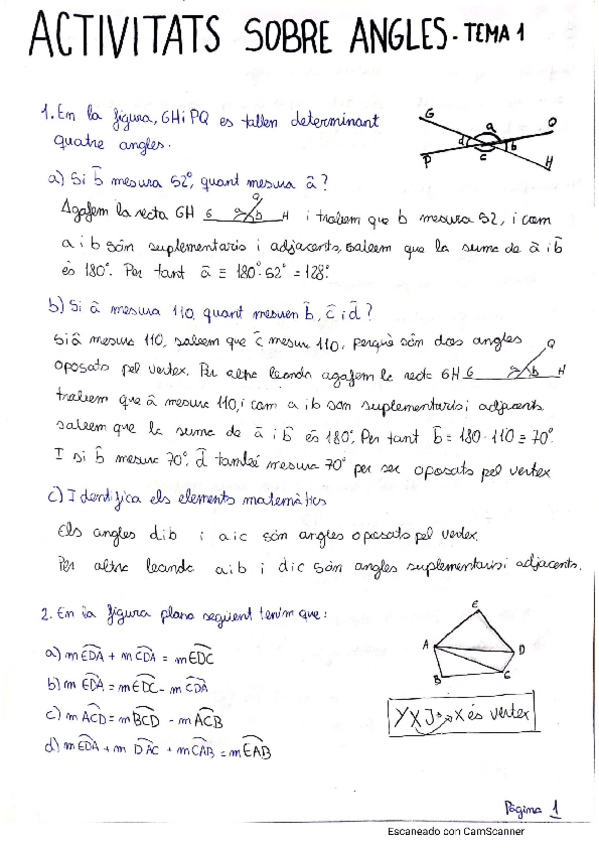 ACTIVITATS SOBRE ANGLES - TEMA 1
1. En la figura, GH i PQ es tallen determinant
quatre angles.
G a Q
d b
P c H
a) Si b̂ mesura 52°, quant mesura â?
Agafem la recta GH G a b H Q i trobem que b mesura 52, i com
a i b són suplementaris i adjacents, sabem que la suma de â i b̂
és 180°. Per tant â = 180° - 52° = 128°.
b) Si â mesura 110, quant mesuren b̂, ĉ i d̂?
Si â mesura 110, sabem que ĉ mesura 110, perquè són dos angles
oposats pel vertex. Per altre banda agafem la recta GH G a b H Q
trobem que â mesura 110, i com a i b són suplementaris i adjacents
sabem que la suma de â i b̂ és 180°. Per tant b̂ = 180 - 110 = 70°.
I si b̂ mesura 70°, d̂ també mesura 70° per ser oposats pel vertex
c) Identifica els elements matemàtics
Els angles d i b i a i c són angles oposats pel vertex.
Per altre banda a i b i d i c són angles suplementaris i adjacents.
2. En la figura plana següent tenim que:
E
A D
B C
a) m EDA + m CDA = m EDC
b) m EDA = m EDC - m CDA
c) m ACD = m BCD - m ACB
d) m EDA + m DAC + m CAB = m EAB
Y X J: X és vertex
Pàgina 1
Escaneado con CamScanner